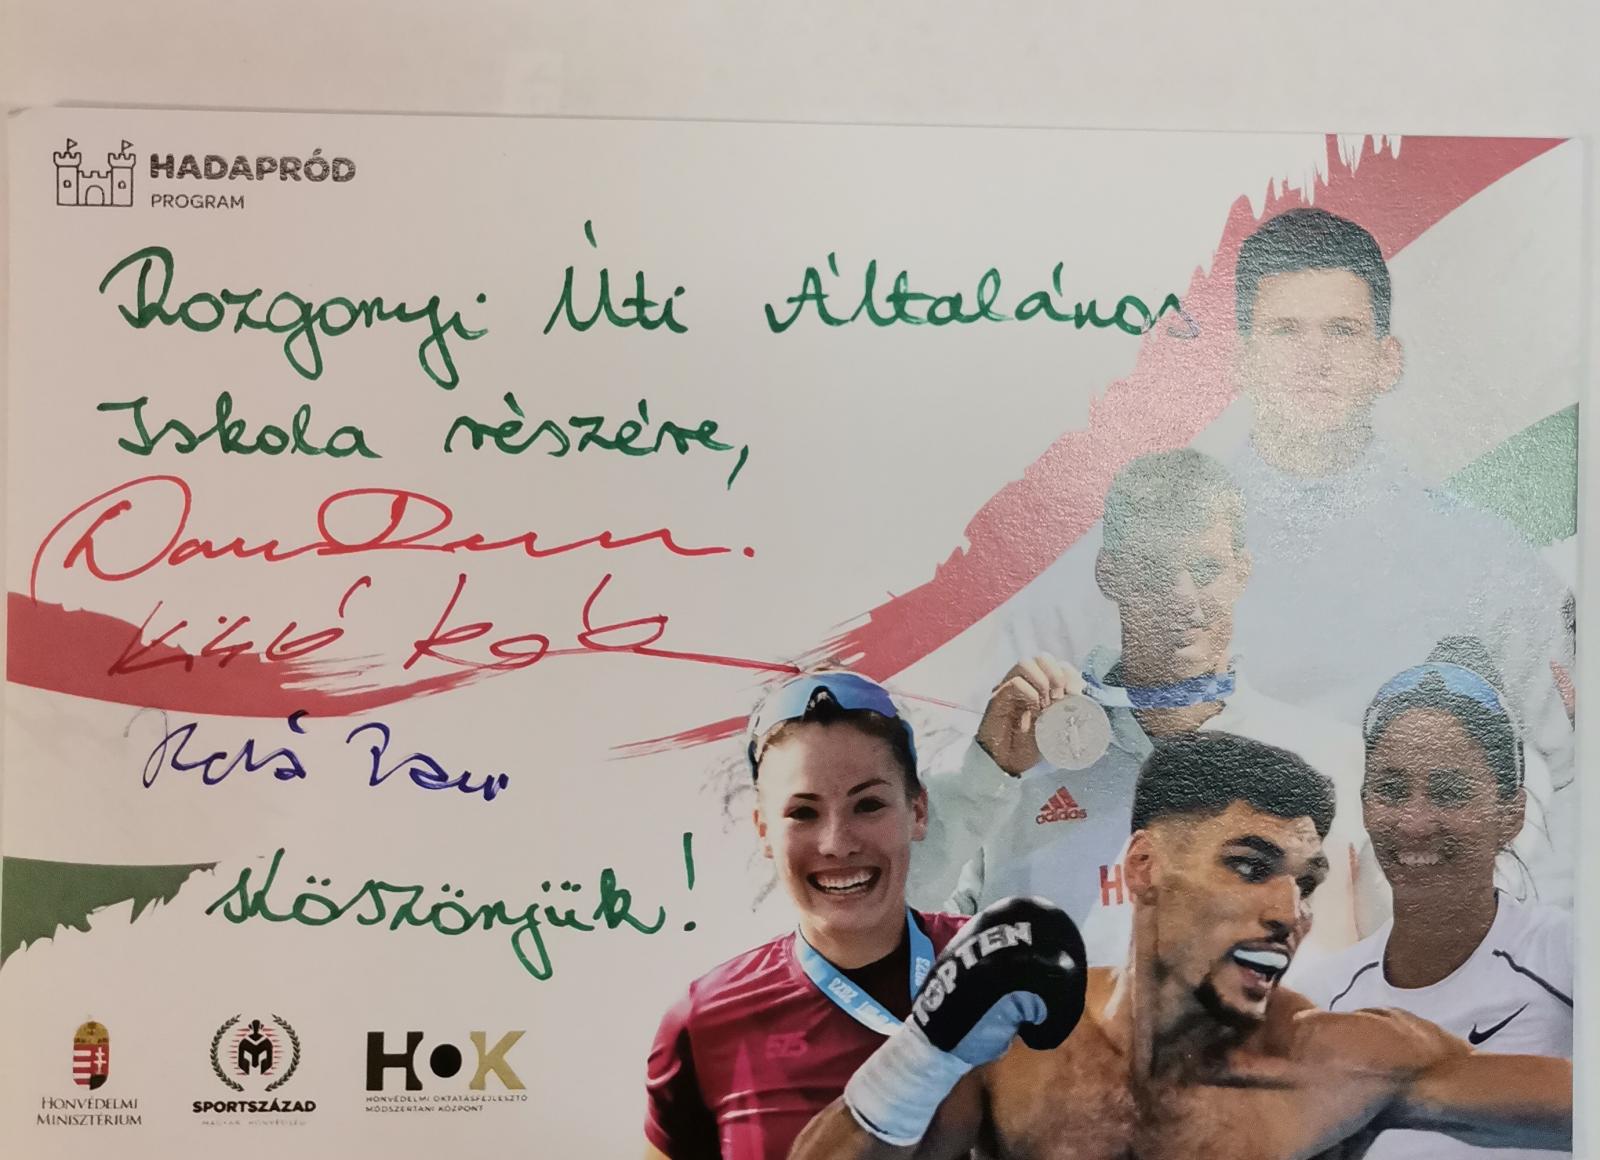 HADAPRÓD
PROGRAM
Rozgonyi Úti Általános
Iskola részére,
Köszönjük!
adidas
TOPTEN
2023
HONVÉDELMI
MINISZTÉRIUM
SPORTSZÁZAD
MAGYAR HONVÉDSÉG
HOK
HONVÉDELMI OKTATÁSFEJLESZTŐ
MÓDSZERTANI KÖZPONT